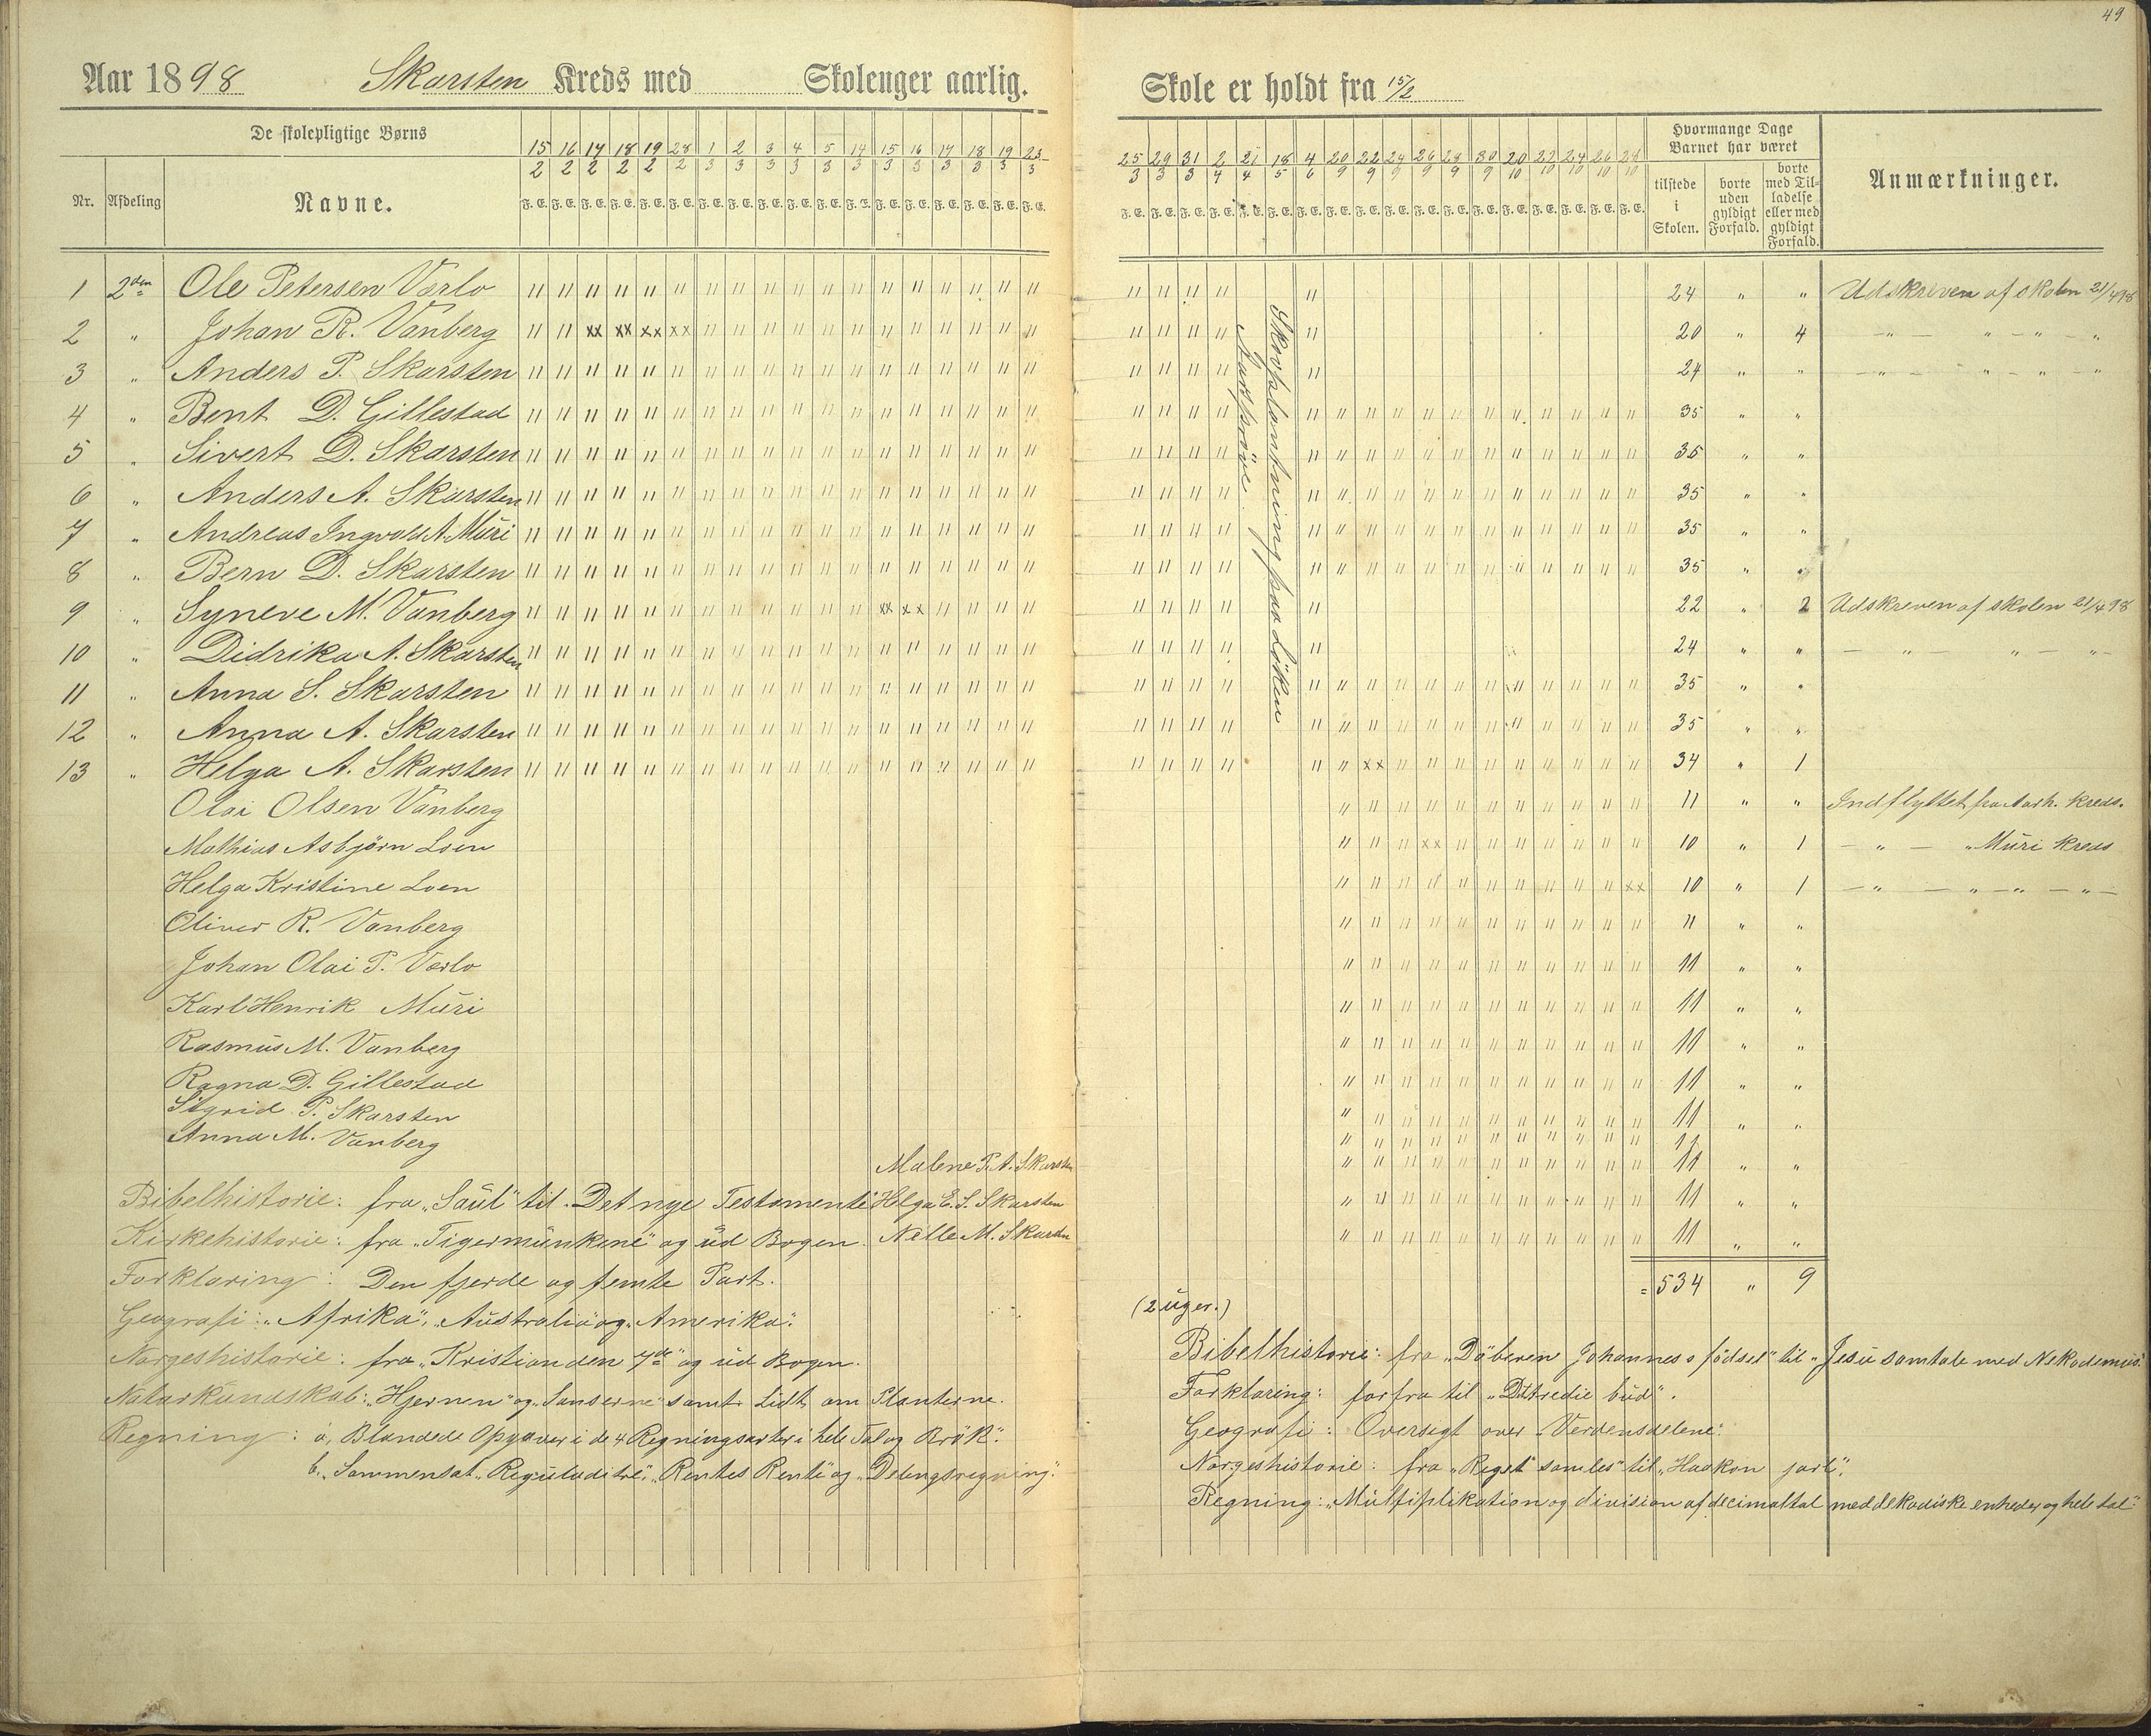 49
Aar 1898 Skarsten Kreds med Skolenger aarlig.
Skole er holdt fra 15/2
De skolepligtige Børns
Nr. Afdeling Navne.
15/2 16/2 17/2 18/2 19/2 28/2 1/3 2/3 3/3 4/3 5/3 14/3 15/3 16/3 17/3 18/3 19/3 23/3
F. E. F. E. F. E. F. E. F. E. F. E. F. E. F. E. F. E. F. E. F. E. F. E. F. E. F. E. F. E. F. E. F. E. F. E.
25/3 29/3 31/3 2/4 21/4 18/5 4/6 20/9 22/9 24/9 26/9 28/9 30/9 20/10 22/10 24/10 26/10 28/10
F. E. F. E. F. E. F. E. F. E. F. E. F. E. F. E. F. E. F. E. F. E. F. E. F. E. F. E. F. E. F. E. F. E. F. E.
Hvormange Dage Barnet har været
tilstede i Skolen.
borte uden gyldigt Forfald.
borte med Tilladelse eller med gyldigt Forfald.
Anmærkninger.
Aarsprøve
Skovplantning paa Løken
1 2den Ole Petersen Værlo 24 " " Udskreven af skolen 21/4 98
2 " Johan R. Vanberg 20 " 4 - " - " - " - "
3 " Anders P. Skarsten 24 " " - " - " - " - "
4 " Bent D. Gillestad 35 " "
5 " Sivert D. Skarsten 35 " "
6 " Anders A. Skarsten 35 " "
7 " Andreas Ingvold A. Muri 35 " "
8 " Bern D. Skarsten 35 " "
9 " Syneve M. Vanberg 22 " 2 Udskreven af skolen 21/4 98
10 " Didrika A. Skarsten 24 " " - " - " - " -
11 " Anna S. Skarsten 35 " "
12 " Anna A. Skarsten 35 " "
13 " Helga A. Skarsten 34 " 1
Olai Olsen Vanberg 11 " " Indflyttet fra kreds.
Mathias Asbjørn Loen 10 " 1 - " - " Muri kreds
Helga Kristine Loen 10 " 1 - " - " - " - " -
Oliver R. Vanberg 11 " "
Johan Olai P. Værlo 11 " "
Karl Henrik Muri 11 " "
Rasmus M. Vanberg 11 " "
Ragna D. Gillestad 11 " "
Sigrid P. Skarsten 11 " "
Anna M. Vanberg 11
Malene P. A. Skarsten 11 " "
Helga E. S. Skarsten 11 " "
Nille M. Skarsten 11 " "
= 534 " 9
Bibelhistorie: fra "Saul" til Det nye Testamente
Kirkehistorie: fra "Tigermunkene" og ud Bogen.
Forklaring: Den fjerde og femte Part.
Geografi: "Afrika", "Australia" og "Amerika".
Norgeshistorie: fra "Kristian den 7de" og ud Bogen.
Naturkundskab: "Hjernen" og "Sanserne" samt Lidt om Planterne.
Regning: a, Blandede Opgaver i de 4 Regningsarter i hele Tal og Brøk".
b. "Sammensat "Reguladitri", "Rentes Rente" og "Delingsregning".
(2 uger.)
Bibelhistorie: fra "Døberen Johannes's fødsel" til "Jesu samtale med Nikodemus".
Forklaring: forfra til "Det tredie bud".
Geografi: Oversigt over Verdensdelene".
Norgeshistorie: fra "Riget samles" til "Haakon jarl".
Regning: "Multiplikation og division af decimaltal med dekadiske enheder og hele tal"